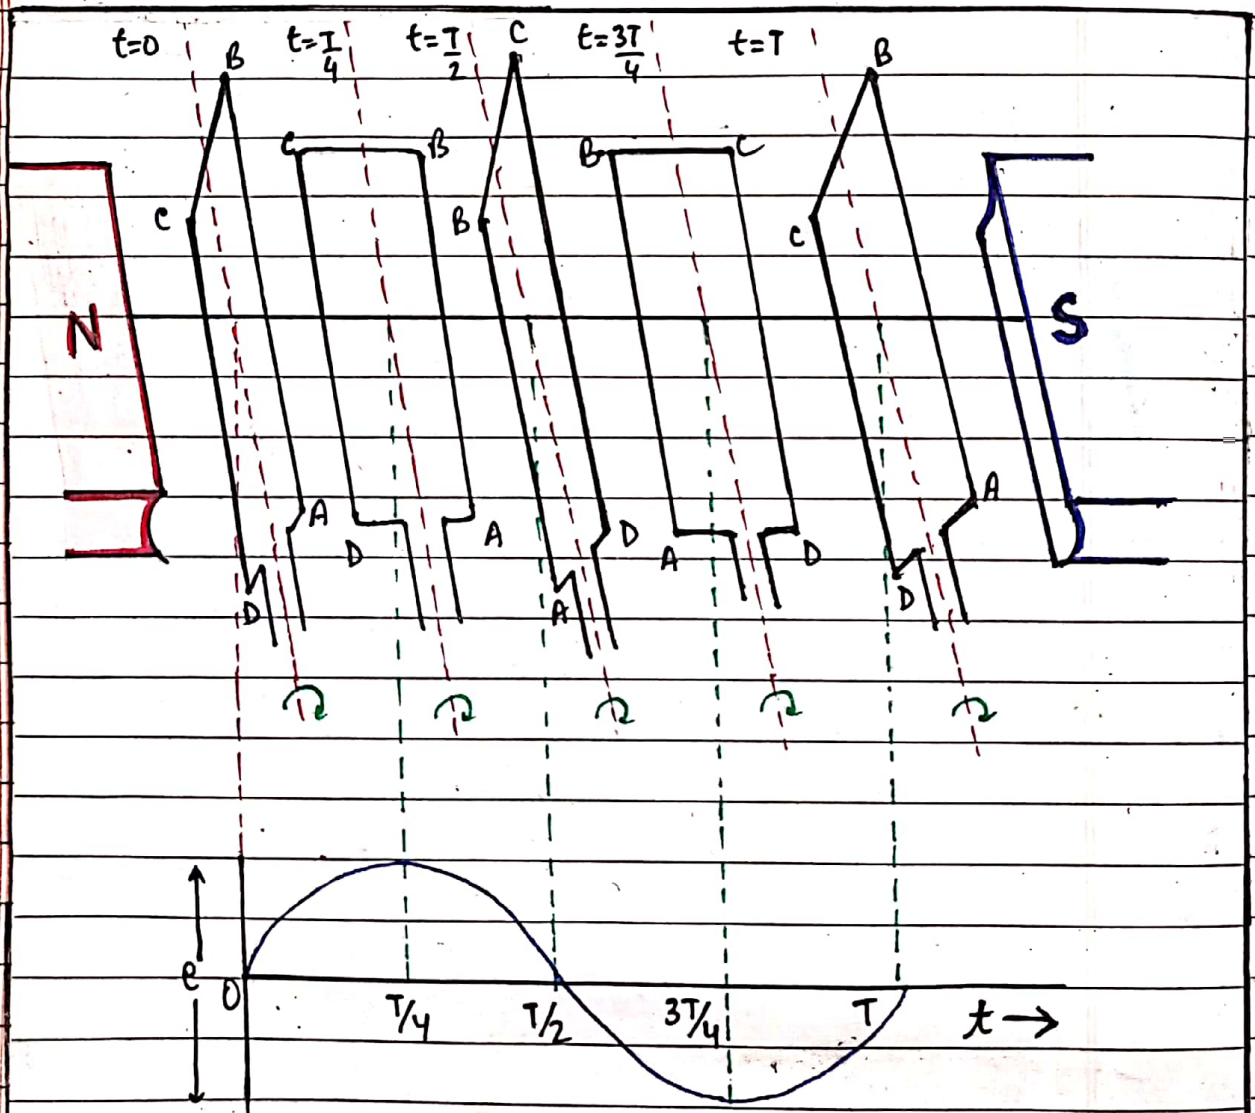 t=0 t=T/4 t=T/2 t=3T/4 t=T
B C B
C B B C
C B C
N S
A D A D A D A
D A D
e
0 T/4 T/2 3T/4 T t→